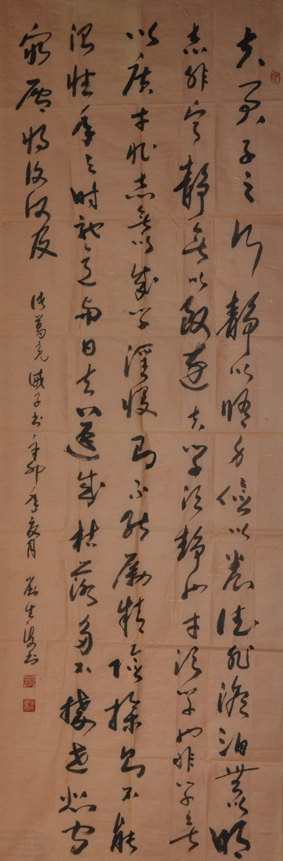 夫君子之行静以修身俭以养德非澹泊無以明
志非宁静无以致远夫学须静也才须学也非学无
以广才非志无以成学淫慢则不能励精险躁则不能
治性年与时驰意与日去遂成枯落多不接世悲守
穷庐将复何及
诸葛亮诫子书辛卯年夏月